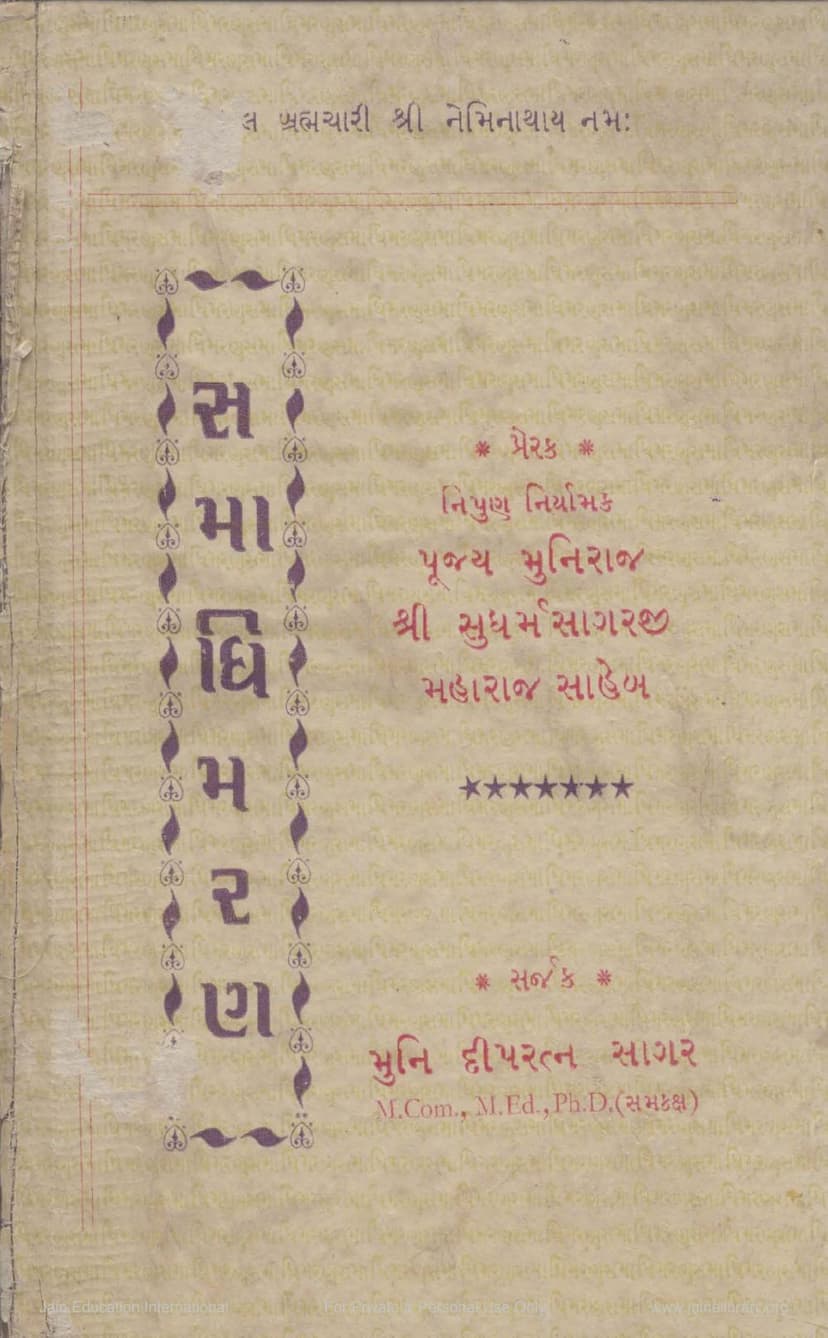 લ બ્રહ્મચારી શ્રી નેમિનાથાય નમ:
સ
મા
ધિ
મ
ર
ણ
* પ્રેરક *
નિપુણ નિર્યામક
પૂજ્ય મુનિરાજ
શ્રી સુધર્મસાગરજી
મહારાજ સાહેબ
★★★★★★★
* સર્જક *
મુનિ દીપરત્ન સાગર
M.Com., M.Ed., Ph.D. (સમકક્ષ)
Jain Education International For Private & Personal Use Only www.jainelibrary.org